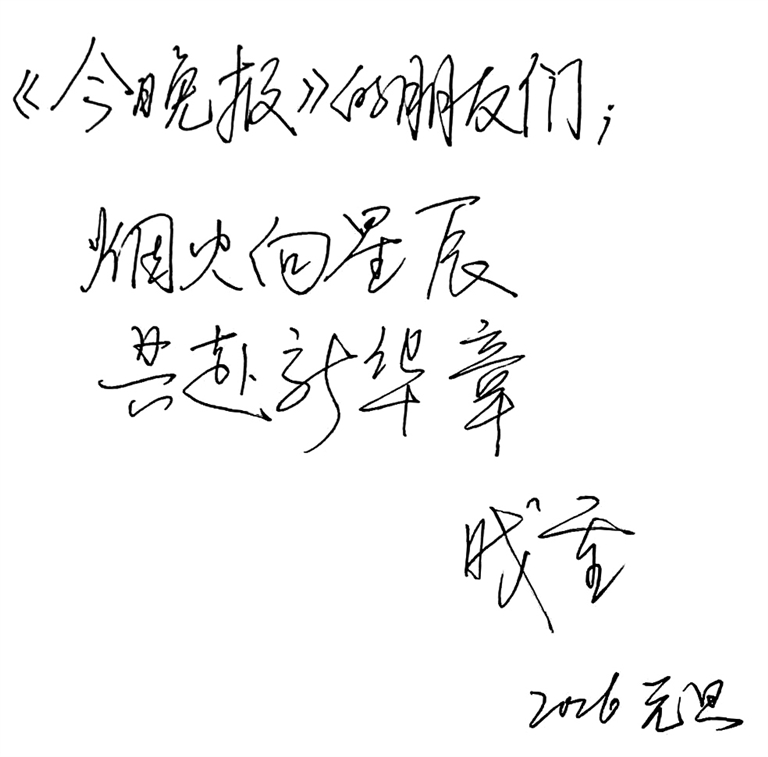 《今晚报》的朋友们；
烟火向星辰
共赴新华章
2026元旦